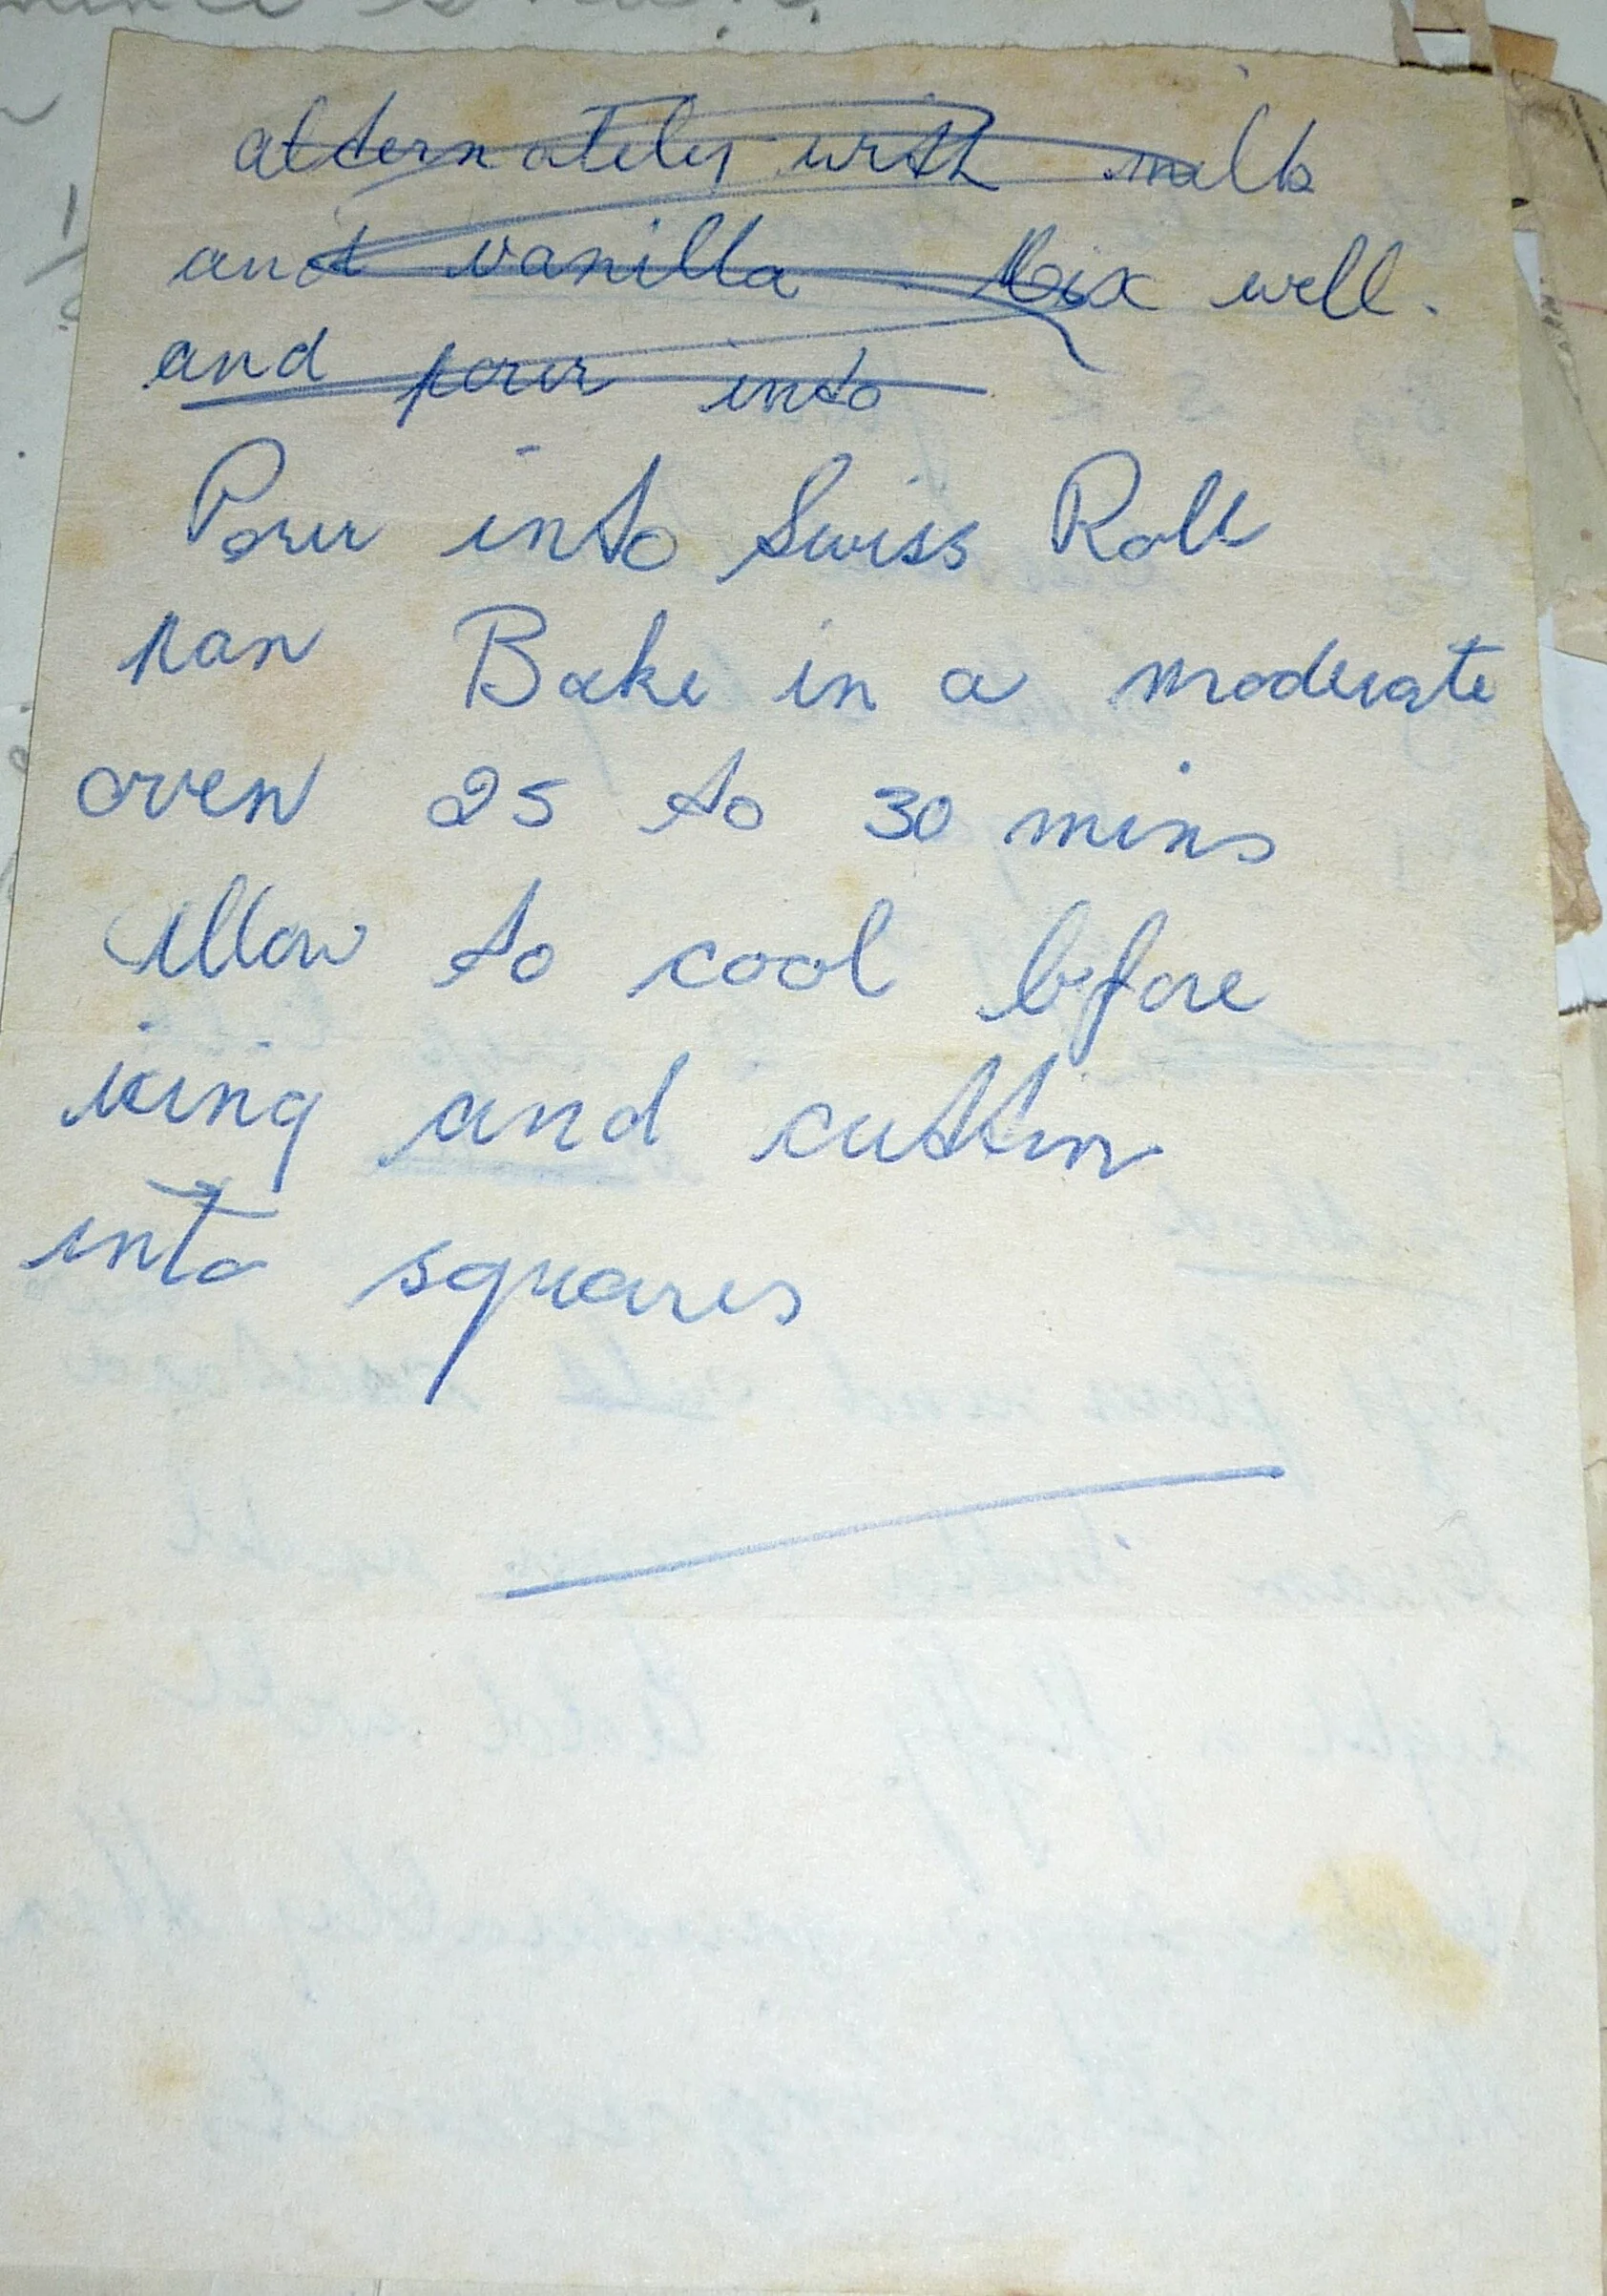 alternately with milk
and vanilla. Mix well.
and pour into
Pour into Swiss Roll
pan Bake in a moderate
oven 25 to 30 mins
Allow to cool before
icing and cuttin
into squares